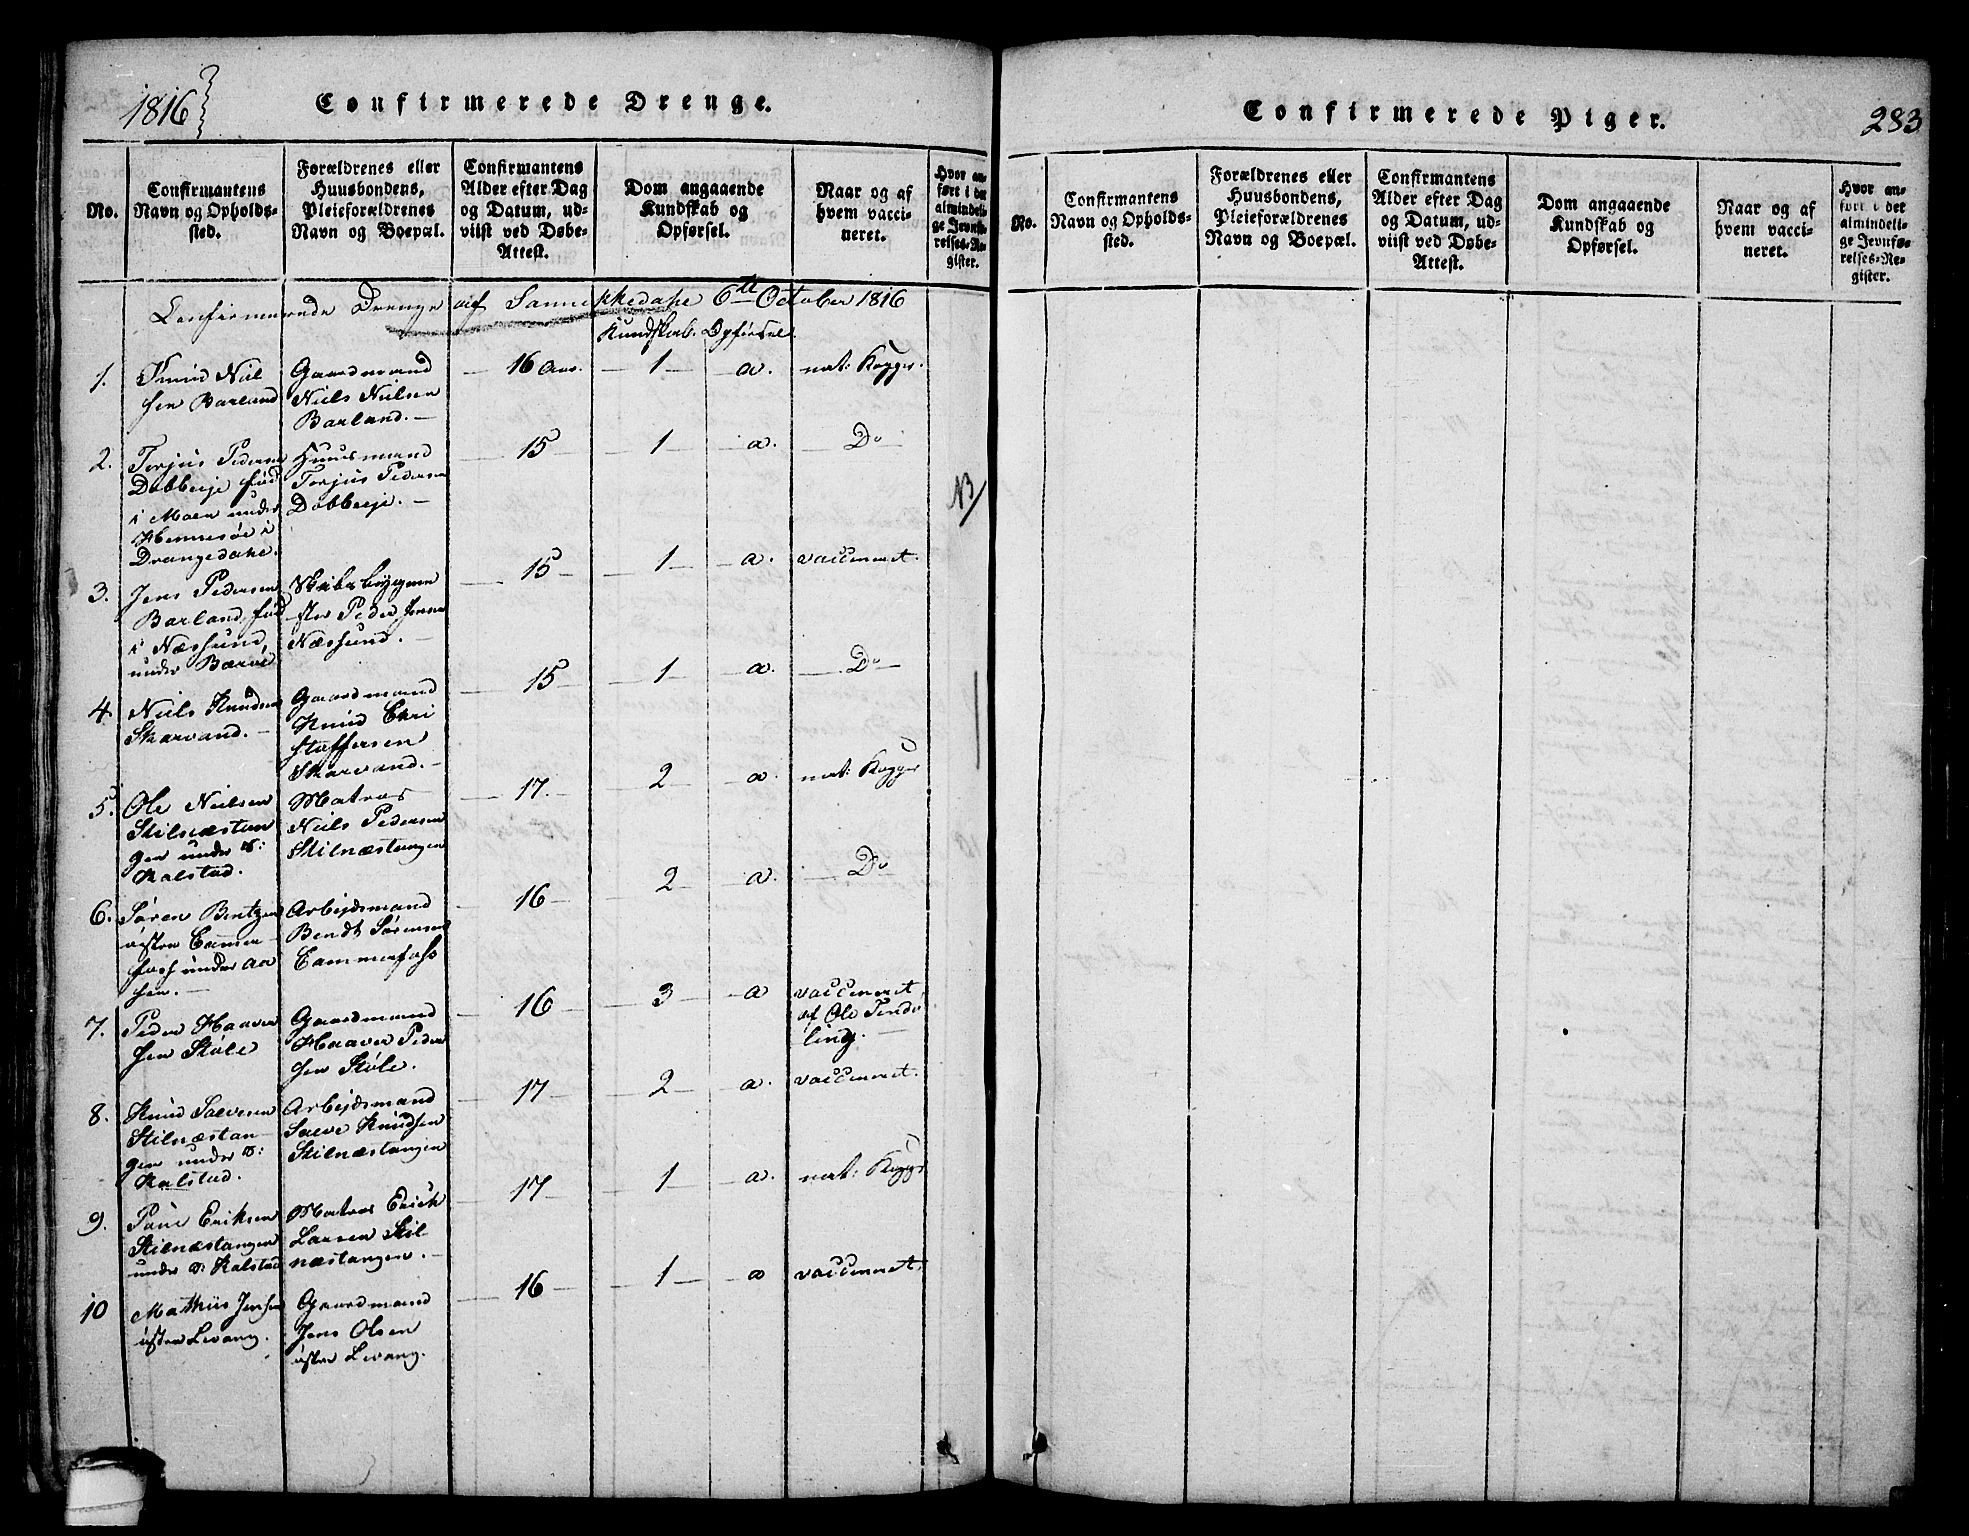 1816
Confirmerede Drenge.
No.
Confirmantens
Navn og Opholds-
sted.
Forældrenes eller
Huusbondens,
Pleieforældrenes
Navn og Boepæl.
Confirmantens
Alder efter Dag
og Datum, ud-
viist ved Døbe-
Attest.
Dom angaaende
Kundskab og
Opførsel.
Naar og af
hvem vacci-
neret.
Hvor an-
ført i det
almindeli-
ge Jevnfø-
relses-Re-
gister.
Confirmerede Drenge af Sannikkedahl 6te October 1816
Kundskab. Opførsel.
1.
Knud Niel
sen Barland
Gaardmand
Niels Nielsen
Barland.
16 Aar.
1
a.
nat: Kopper.
2.
Torjus Pedersen
Dobbeje fød
i Moen under
Hennesøe i
Drangedahl.
Huusmand
Torjus Pedersen
Dobbeje.
15
1
a.
Do
NB
3.
Jens Pedersen
Barland, fød
i Næssund,
under Barve
Skibsbygme
ster Peder Jensen
Næssund.
15
1
a.
vaccineret.
4.
Niels Knudsen
Skarvand.
Gaardmand
Knud Chri
stoffersen
Skarvand.
15
1
a.
Do
5.
Ole Nielsen
Stilnæstan
gen under ø:
Kalstad.
Matros
Niels Pedersen
Stilnæstangen
17.
2
a.
nat: Kopper
6.
Søren Bentzen
østre Camer
foss under Aa
sen.
Arbejdsmand
Bendt Sørensen
Cammerfoss
16
2
a.
Do
7.
Peder Haaver
sen Støle
Gaardmand
Haaver Peder
sen Støle.
16
3
a
vaccineret
af Ole Tendø
ling.
8.
Knud Salvesen
Stilnæstan
gen under ø:
Kalstad.
Arbejdsmand
Salve Knudsen
Stilnæstangen
17
2
a.
vaccineret.
9.
Paul Eriksen
Stilnæstangen
under ø: Kalstad
Matros Erick
Larsen Stil
næstangen.
17
1
a.
nat: Kopper
10
Mathiis Jensen
østre Levang.
Gaardmand
Jens Olsen
østre Levang.
16
1
a
vaccineret.
Confirmerede Piger.
283
No.
Confirmantens
Navn og Opholds-
sted.
Forældrenes eller
Huusbondens,
Pleieforældrenes
Navn og Boepæl.
Confirmantens
Alder efter Dag
og Datum, ud-
viist ved Døbe-
Attest.
Dom angaaende
Kundskab og
Opførsel.
Naar og af
hvem vacci-
neret.
Hvor an-
ført i det
almindeli-
ge Jevnfø-
relses-Re-
gister.